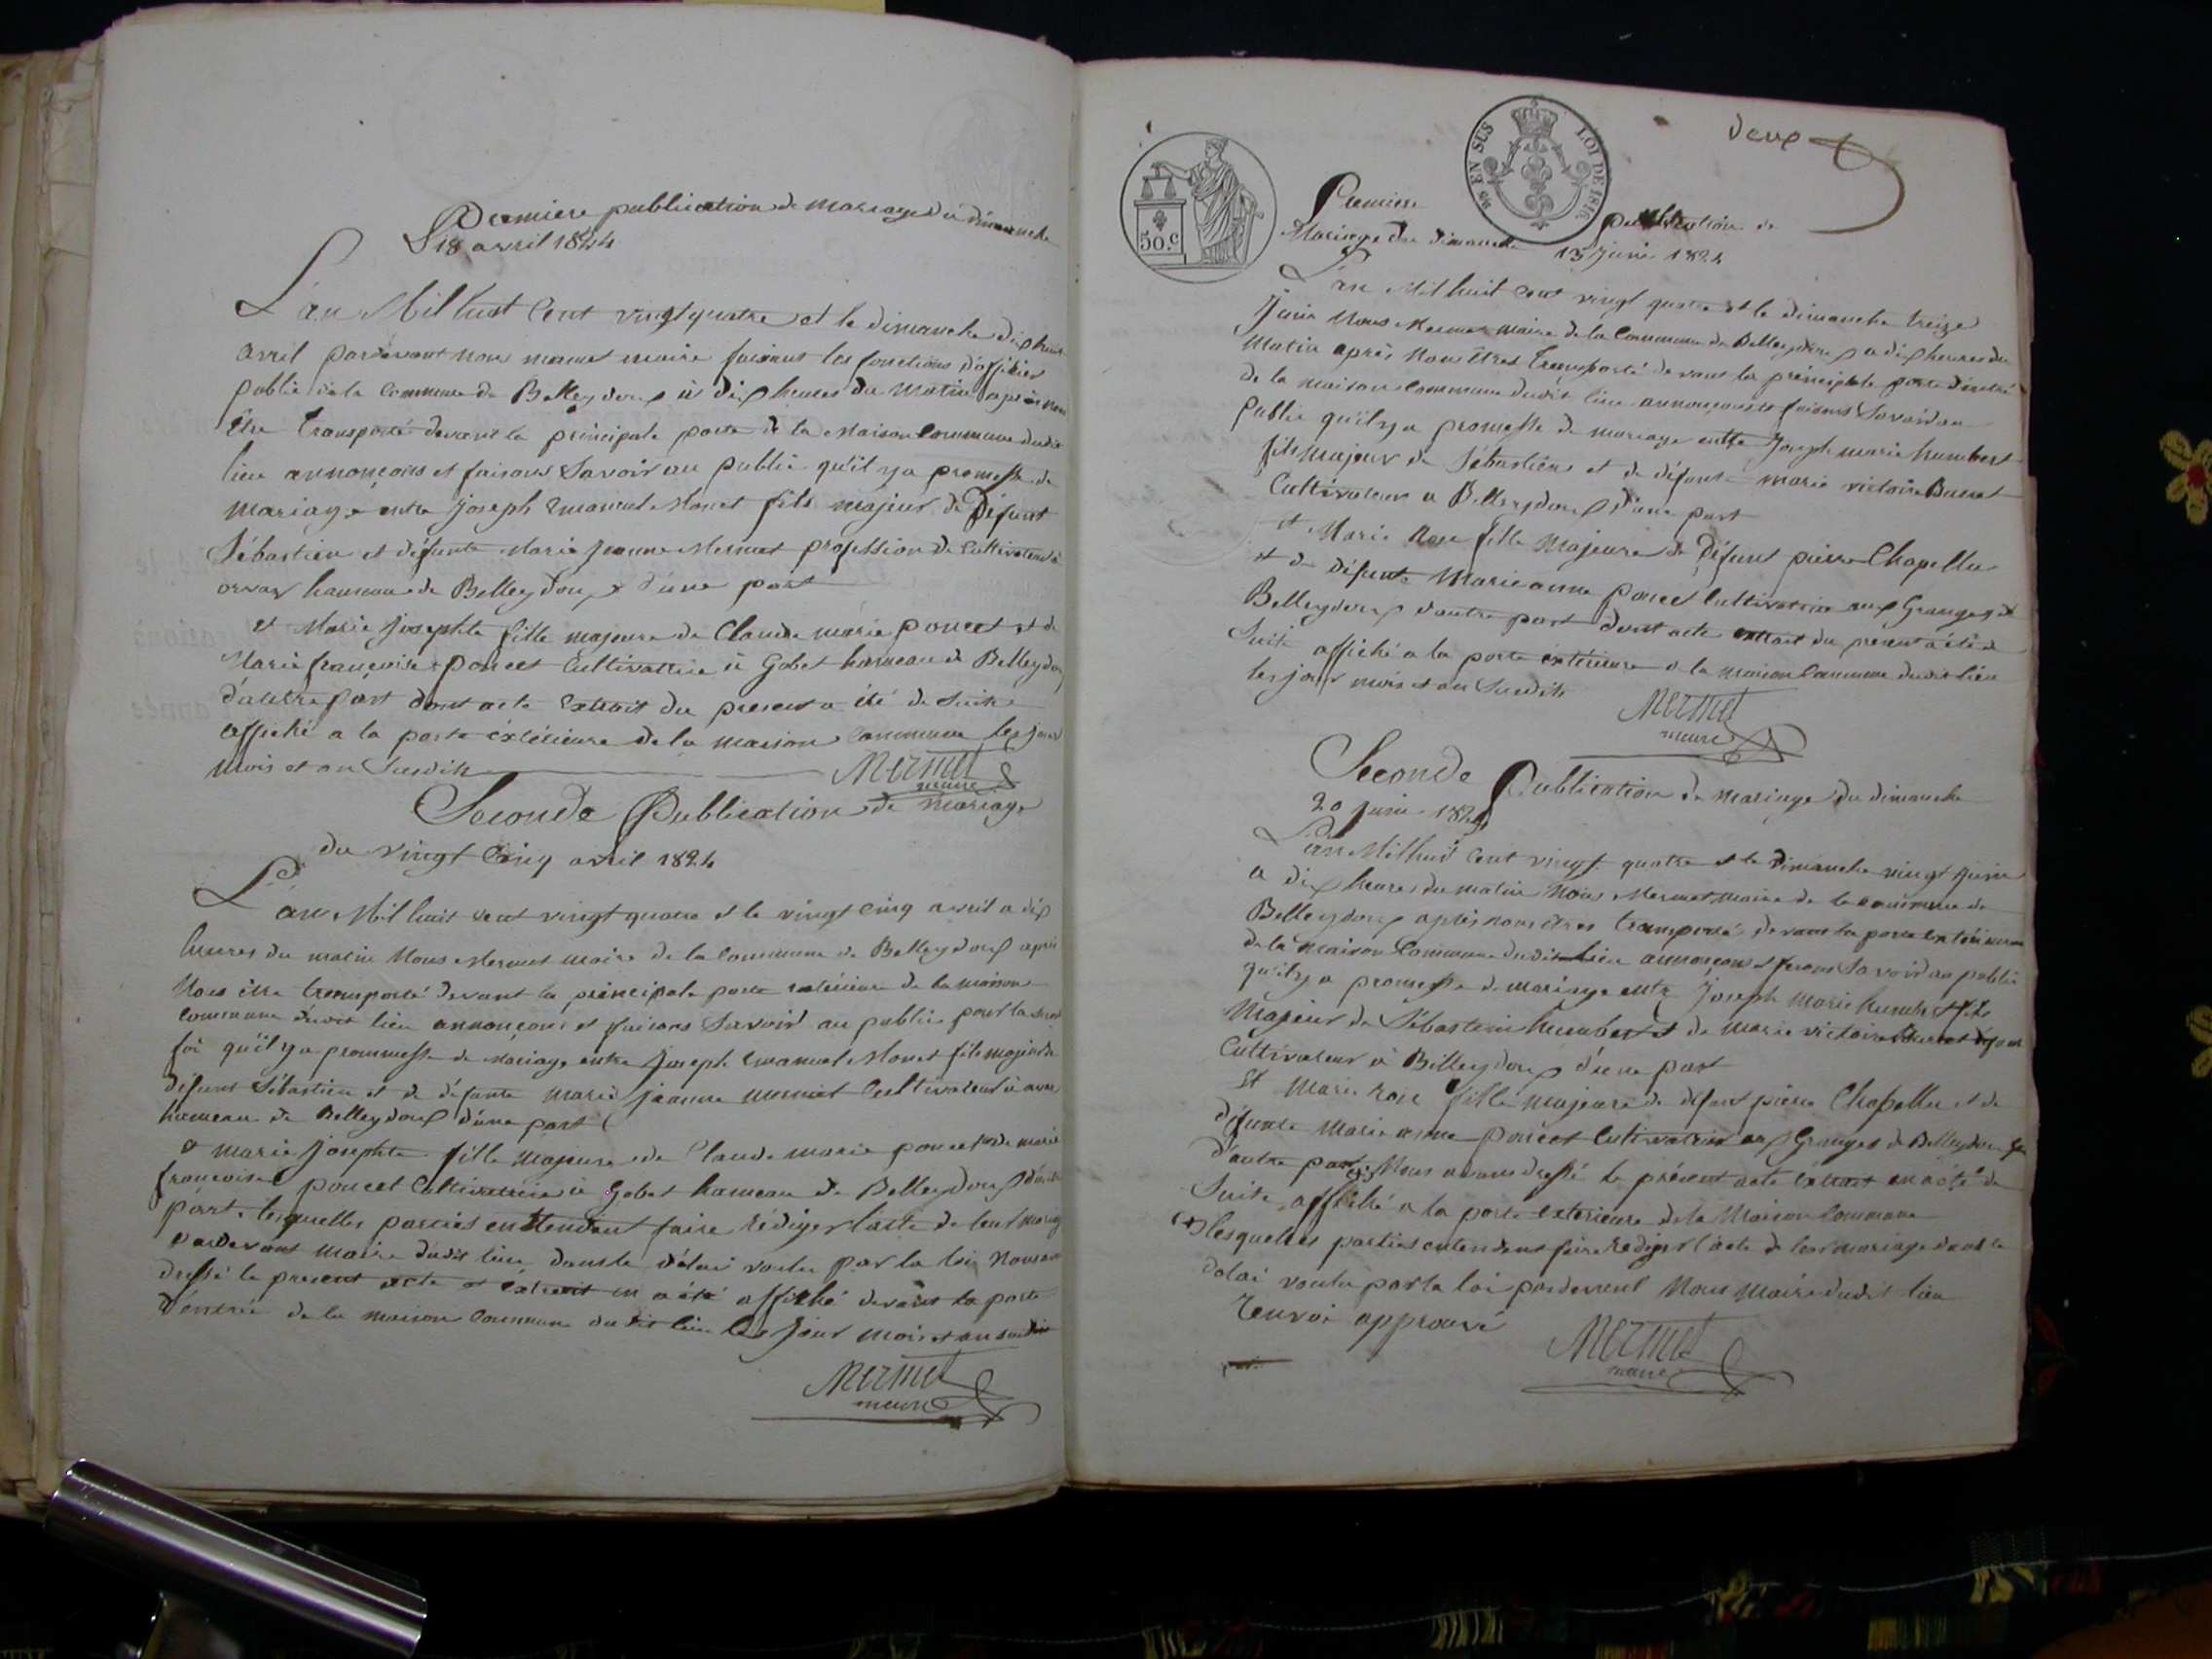 Premiere publication de mariage du dimanche
18 avril 1824
L'an Mil huit Cent vingt quatre et le dimanche dix huit
avril pardevant nous mermet maire faisant les fonctions d'officier
public de la Commune de Belleydoux à dix heures du Matin après nous
être Transporté devant la principale porte de la Maison Commune dudit
lieu annonçons et faisons Savoir au public qu'il y a promesse de
mariage entre Joseph Emanuel Monet fils majeur de Défunt
Sébastien et défunte Marie Jeanne Mermet profession de Cultivateur à
orvaz hameau de Belleydoux d'une part
et Marie Josephte fille majeure de Claude marie poncet et de
Marie françoise poncet Cultivatrice à Gobet hameau de Belleydoux
d'autre part dont acte Extrait du present a été de Suite
affiché a la porte extérieure de la maison Commune les jour
mois et an Susdits
Mermet
maire
Seconde Publication de Mariage
du vingt Cinq avril 1824
L'an Mil huit cent vingt quatre et le vingt Cinq avril a dix
heures du matin Nous Mermet maire de la Commune de Belleydoux après
Nous être transporté devant la principale porte extérieure de la maison
commune dudit lieu annonçons et faisons Savoir au public pour la
foi qu'il y a prommesse de Mariage entre Joseph Emanuel Monet fils majeur de
défunt Sébastien et de défunte marie jeanne mermet Cultivateur à
hameau de Belleydoux d'une part
et marie Josephte fille majeure de Claude marie poncet et de marie
françoise poncet Cultivatrice à Gobet hameau de Belleydoux d'autre
part. lesquelles parties entendent faire rédiger l'acte de leur mariage
pardevant maire dudit lieu dans le délai voulu par la loi Nous avons
dressé le present acte et extrait en a été affiché devant la porte
d'entrée de la maison Commune dudit lieu les jour mois et an susdits
Mermet
maire
deux
50.c
EN SUS LOI DE 1816
Premiere publication de
Mariage du dimanche 13 Juin 1824
L'an Mil huit Cent vingt quatre et le dimanche treize
Juin Nous Mermet maire de la Commune de Belleydoux a dix heures du
Matin après Nous êtres Transporté devant la principale porte d'entrée
de la maison Commune dudit lieu annonçons et faisons Savoir au
public qu'il y a promesse de mariage entre Joseph marie humbert
fils majeur de Sébastien et de défunte marie victoire
Cultivateur a Belleydoux d'une part
et Marie Rose fille Majeure de Défunt pierre Chapellu
et de défunte Marie anne poncet Cultivatrice aux Granges de
Belleydoux d'autre part dont acte extrait du present a été de
Suite affiché a la porte extérieure de la maison Commune dudit lieu
les jour mois et an Susdits
Mermet
maire
Seconde Publication de mariage du dimanche
20 Juin 1824
L'an Mil huit Cent vingt quatre et le dimanche vingt Juin
a dix heures du matin Nous Mermet maire de la commune de
Belleydoux après nous êtres transporté devant la porte extérieure
de la maison Commune dudit lieu annonçons et faisons Savoir au public
qu'il y a promesse de mariage entre Joseph Marie humbert fils
Majeur de Sébastien humbert et de marie victoire
Cultivateur à Belleydoux d'une part
Et Marie rose fille majeure de défunt pierre Chapellu et de
défunte Marie anne poncet Cultivatrice aux Granges de Belleydoux
d'autre part Nous avons dressé le présent acte extrait en a été de
Suite affiché a la porte extérieure de la Maison Commune
lesquelles parties entendent faire rediger l'acte de leur mariage dans le
delai voulu par la loi pardevant Nous Maire dudit lieu
renvoi approuvé
Mermet
maire